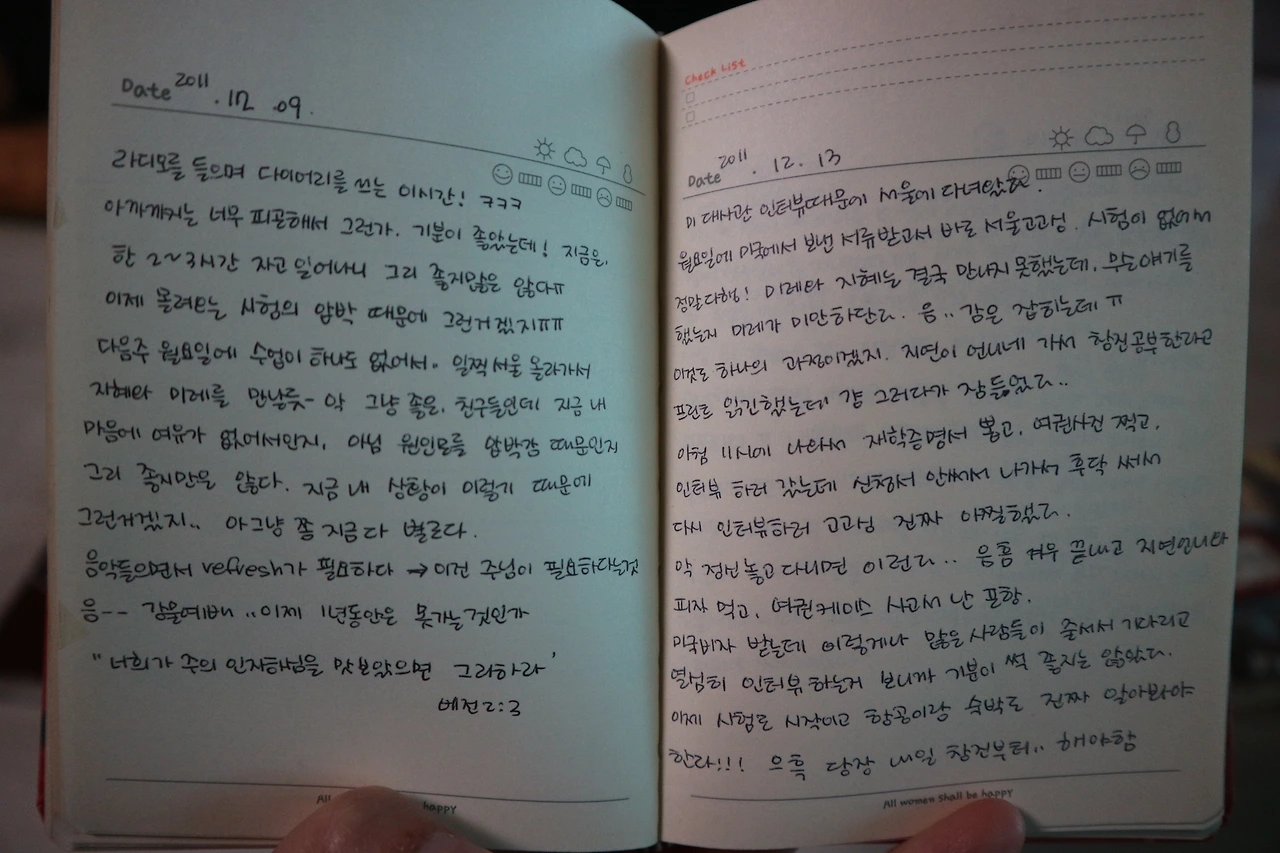 Date 2011 . 12 . 09.
라디오를 들으며 다이어리를 쓰는 이시간! ㅋㅋㅋ
아까까지는 너무 피곤해서 그런가. 기분이 좋았는데! 지금은,
한 2~3시간 자고 일어나니 그리 좋지않은 않다ㅠ
이제 몰려오는 시험의 압박 때문에 그런거겠지ㅠㅠ
다음주 월요일에 수업이 하나도 없어서.. 일찍 서울 올라가서
지혜와 미례를 만날듯~ 악 그냥 좋은, 친구들인데 지금 내
마음에 여유가 없어서인지, 아님 원인모를 압박감 때문인지
그리 좋지만은 않다. 지금 내 상황이 이렇기 때문에
그런거겠지.. 아 그냥 쫌 지금 다 별로다.
음악들으면서 refresh가 필요하다 → 이건 주님이 필요하다는것
음-- 강물예배 .. 이제 1년동안은 못가는것인가
"너희가 주의 인자하심을 맛보았으면 그리하라'
베전2:3
All happy
Check List
Date 2011 . 12 . 13
미 대사관 인터뷰때문에 서울에 다녀왔다.
월요일에 미국에서 보낸 서류받고서 바로 서울고고싱. 시험이 없어서
정말다행! 미례와 지혜는 결국 만나지 못했는데, 무슨얘기를
했는지 미례가 미안하단다. 음.. 감은 잡히는데 ㅠ
이것도 하나의 과정이겠지. 지연이 언니네 가서 창진공부한라고
프린트 읽긴했는데 걍 그러다가 잠들었다..
아침 11시에 나와서 재학증명서 뽑고, 여권사진 찍고,
인터뷰 하러 갔는데 신청서 안써서 나가서 후닥 써서
다시 인터뷰하러 고고싱 진짜 아찔했다.
악 정신놓고 다니면 이런다.. 음흠 겨우 끝내고 지연언니와
피자 먹고, 여권케이스 사고서 난 포항.
미국비자 받는데 이렇게나 많은 사람들이 줄서서 기다리고
열심히 인터뷰하는거 보니까 기분이 썩 좋지는 않았다.
이제 시험도 시작이고 항공이랑 숙박도 진짜 알아봐야
한다!!! 으흑 당장 내일 창진부터.. 해야함
All women shall be happy